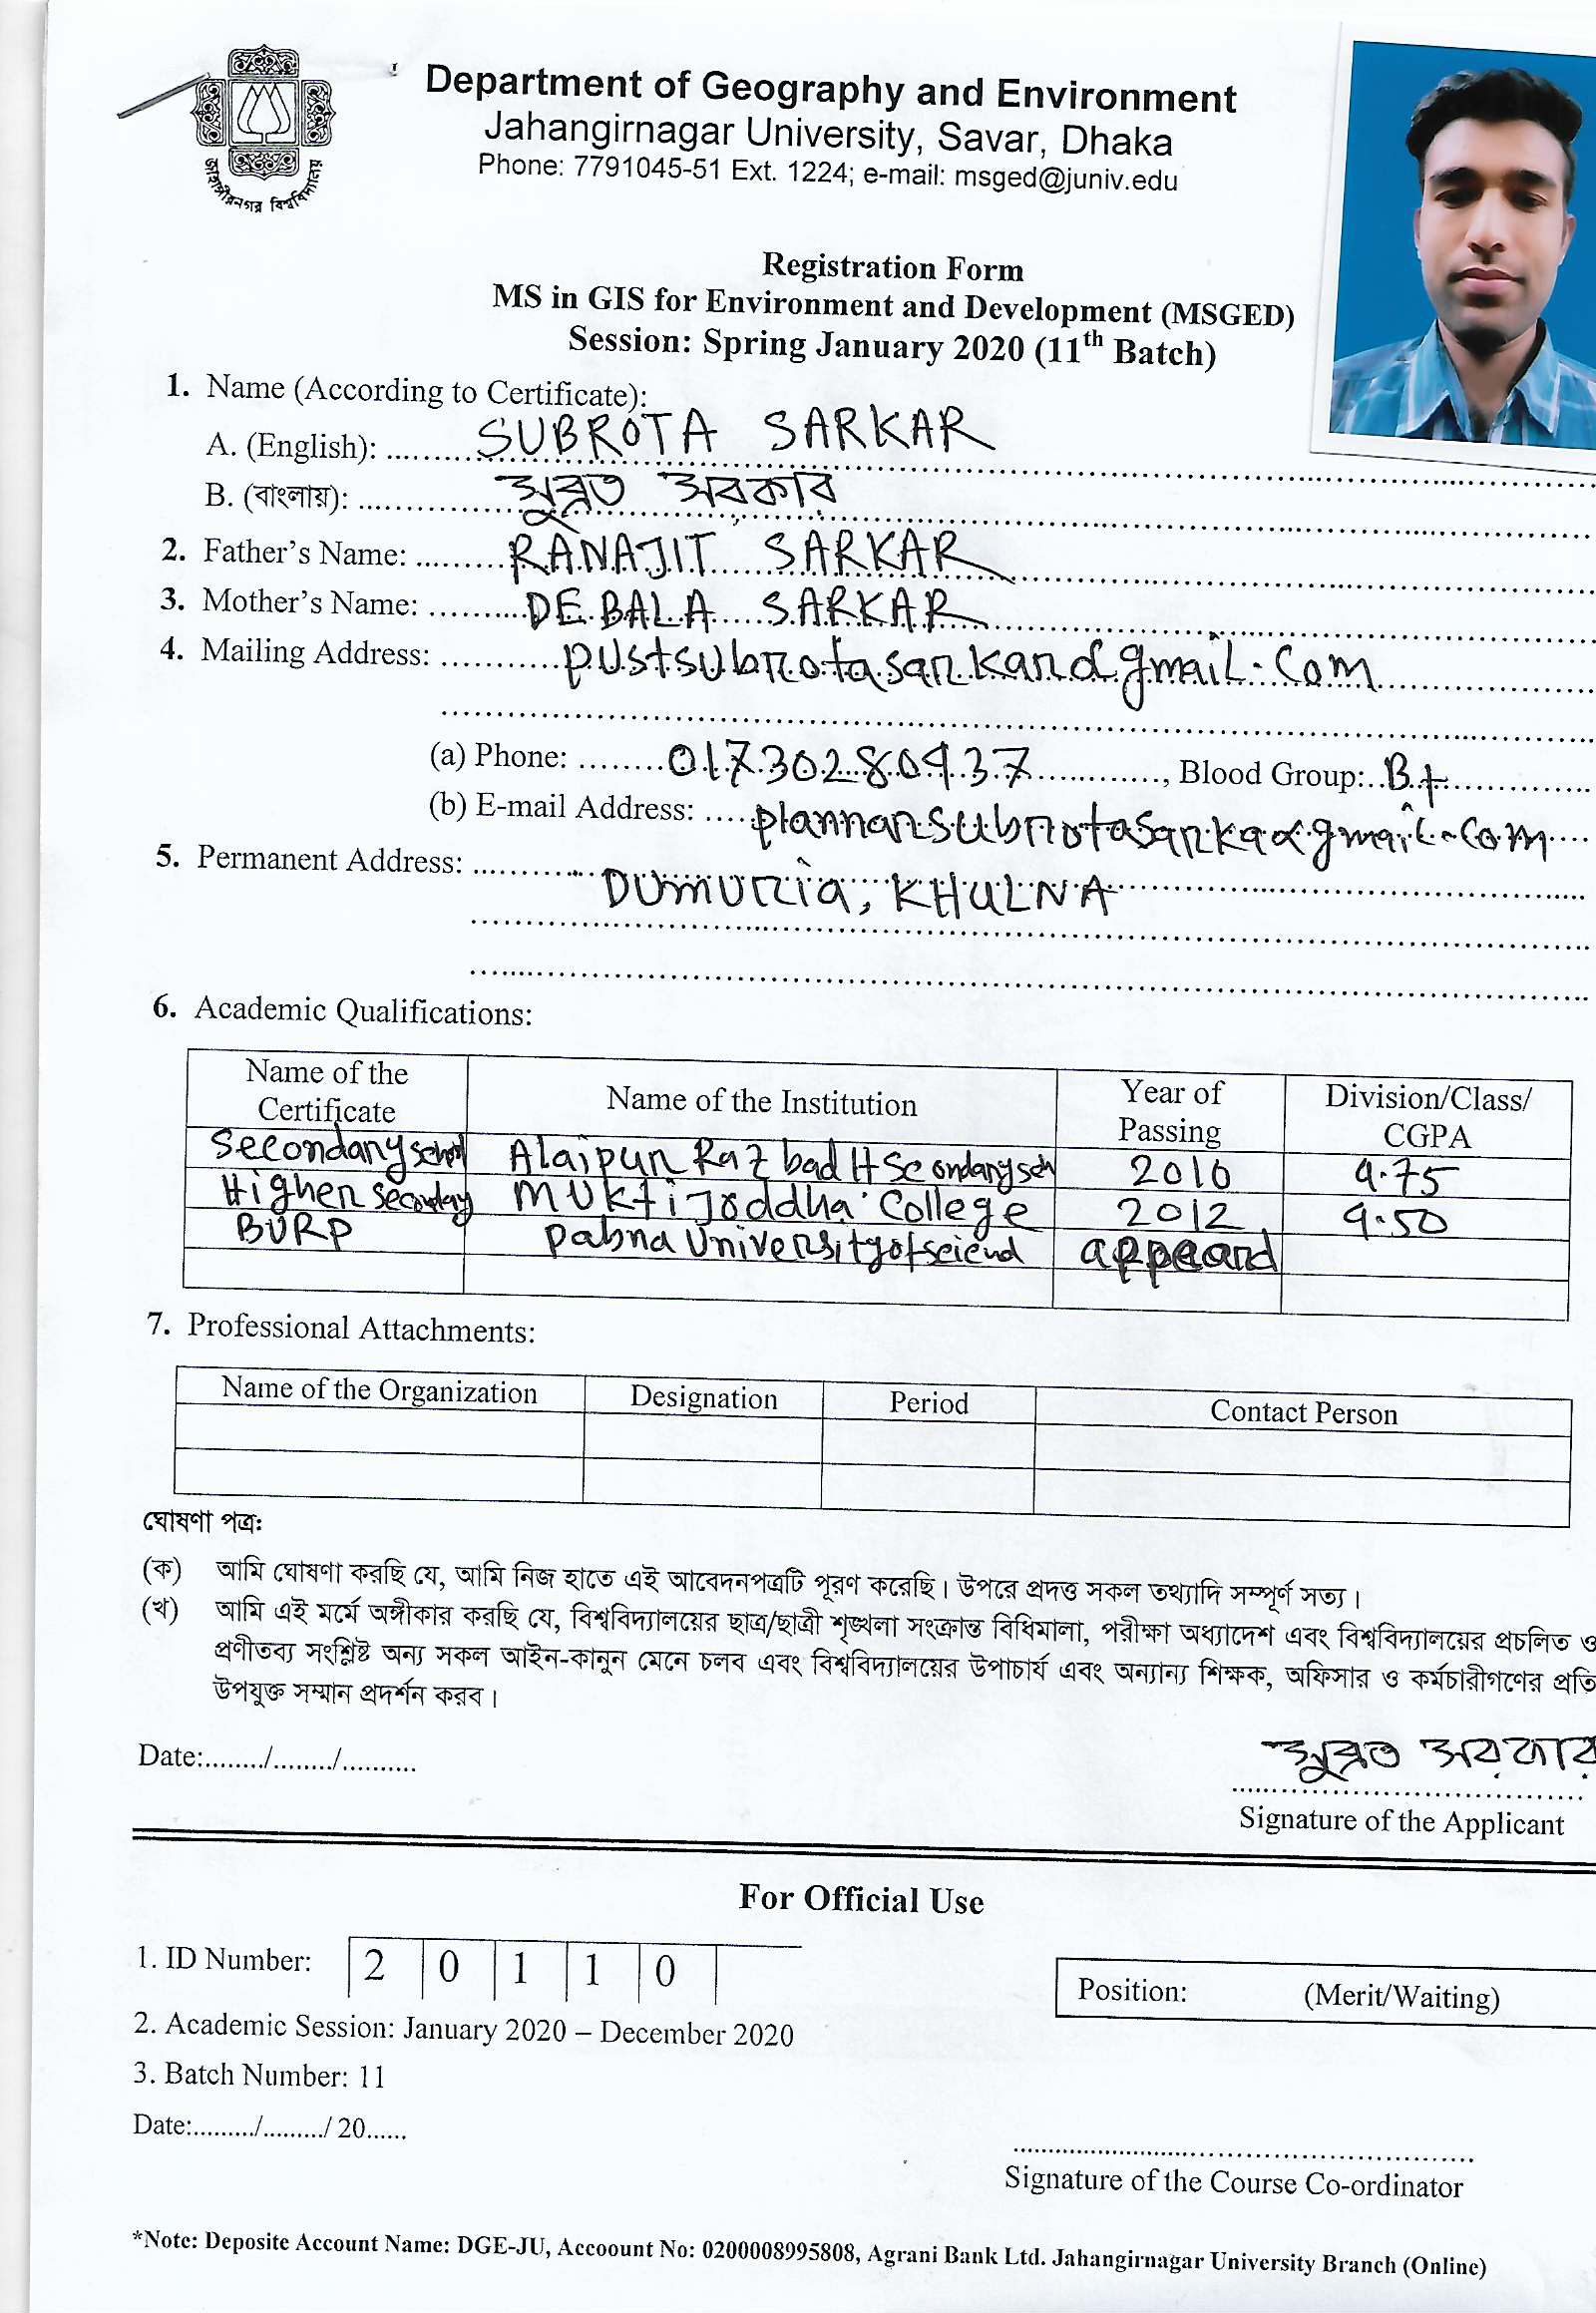 জাহাঙ্গীরনগর বিশ্ববিদ্যালয়
Department of Geography and Environment
Jahangirnagar University, Savar, Dhaka
Phone: 7791045-51 Ext. 1224; e-mail: msged@juniv.edu
Registration Form
MS in GIS for Environment and Development (MSGED)
Session: Spring January 2020 (11th Batch)
1. Name (According to Certificate):
A. (English): SUBROTA SARKAR
B. (বাংলায়): সুব্রত সরকার
2. Father's Name: RANAJIT SARKAR
3. Mother's Name: DEBALA SARKAR
4. Mailing Address: pustsubrotasarkar@gmail.com
(a) Phone: 01730280937, Blood Group: B+
(b) E-mail Address: plannarsubrotasarka@gmail.com
5. Permanent Address: DUMURIA, KHULNA
6. Academic Qualifications:
Name of the Certificate Name of the Institution Year of Passing Division/Class/ CGPA
Secondary school Alaipur Razbad H Secondary sch 2010 4.75
Higher Secondary Muktijoddha College 2012 4.50
BURP Pabna University of appeard
7. Professional Attachments:
Name of the Organization Designation Period Contact Person
ঘোষণা পত্র:
(ক) আমি ঘোষণা করছি যে, আমি নিজ হাতে এই আবেদনপত্রটি পূরণ করেছি। উপরে প্রদত্ত সকল তথ্যাদি সম্পূর্ণ সত্য।
(খ) আমি এই মর্মে অঙ্গীকার করছি যে, বিশ্ববিদ্যালয়ের ছাত্র/ছাত্রী শৃঙ্খলা সংক্রান্ত বিধিমালা, পরীক্ষা অধ্যাদেশ এবং বিশ্ববিদ্যালয়ের প্রচলিত ও
প্রণীতব্য সংশ্লিষ্ট অন্য সকল আইন-কানুন মেনে চলব এবং বিশ্ববিদ্যালয়ের উপাচার্য এবং অন্যান্য শিক্ষক, অফিসার ও কর্মচারীগণের প্রতি
উপযুক্ত সম্মান প্রদর্শন করব।
সুব্রত সরকার
Date:......../......../..........
Signature of the Applicant
For Official Use
1. ID Number: 2 0 1 1 0
Position: (Merit/Waiting)
2. Academic Session: January 2020 – December 2020
3. Batch Number: 11
Date:........./........./ 20......
Signature of the Course Co-ordinator
*Note: Deposite Account Name: DGE-JU, Accoount No: 0200008995808, Agrani Bank Ltd. Jahangirnagar University Branch (Online)